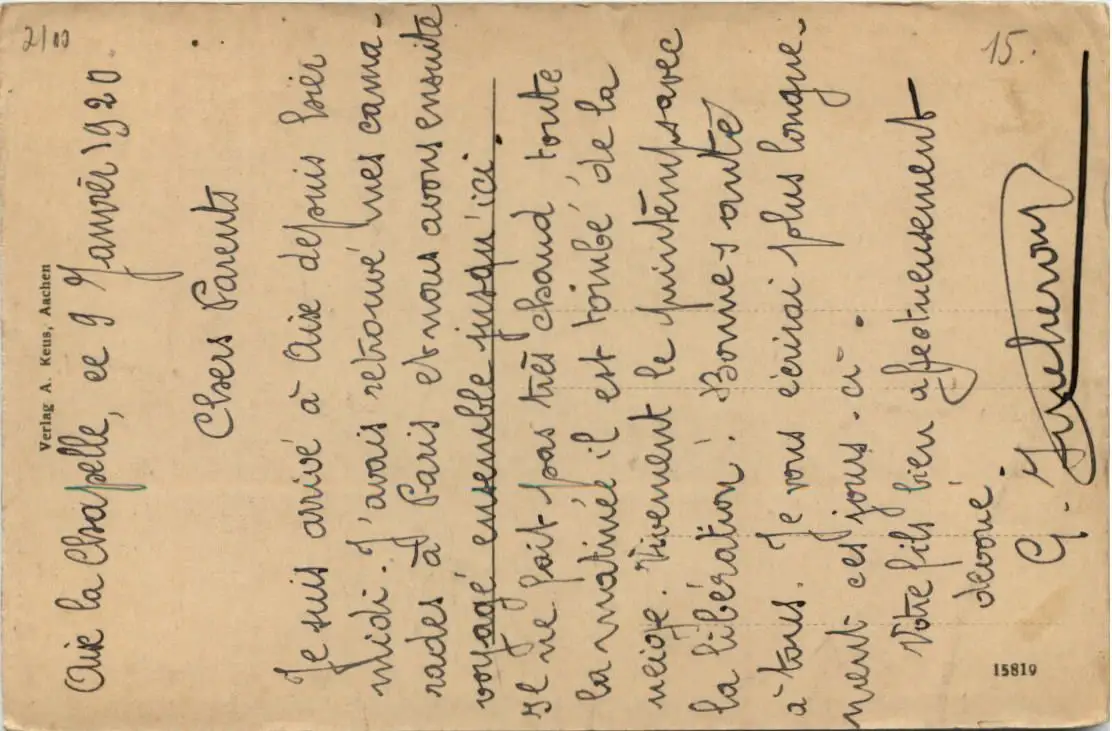 2/10
15.
Verlag A. Keus, Aachen
Aix la Chapelle, ce 9 Janvier 1920.
Chers Parents
Je suis arrivé à Aix depuis hier
midi. J'avais retrouvé mes cama-
rades à Paris et nous avons ensuite
voyagé ensemble jusqu'ici.
Il ne fait pas très chaud toute
la matinée il est tombé de la
neige. Vivement le printemps avec
la libération! Bonne santé
à tous. Je vous écrirai plus longue-
ment ces jours-ci.
Votre fils bien affectueusement
dévoué.
G.
15819